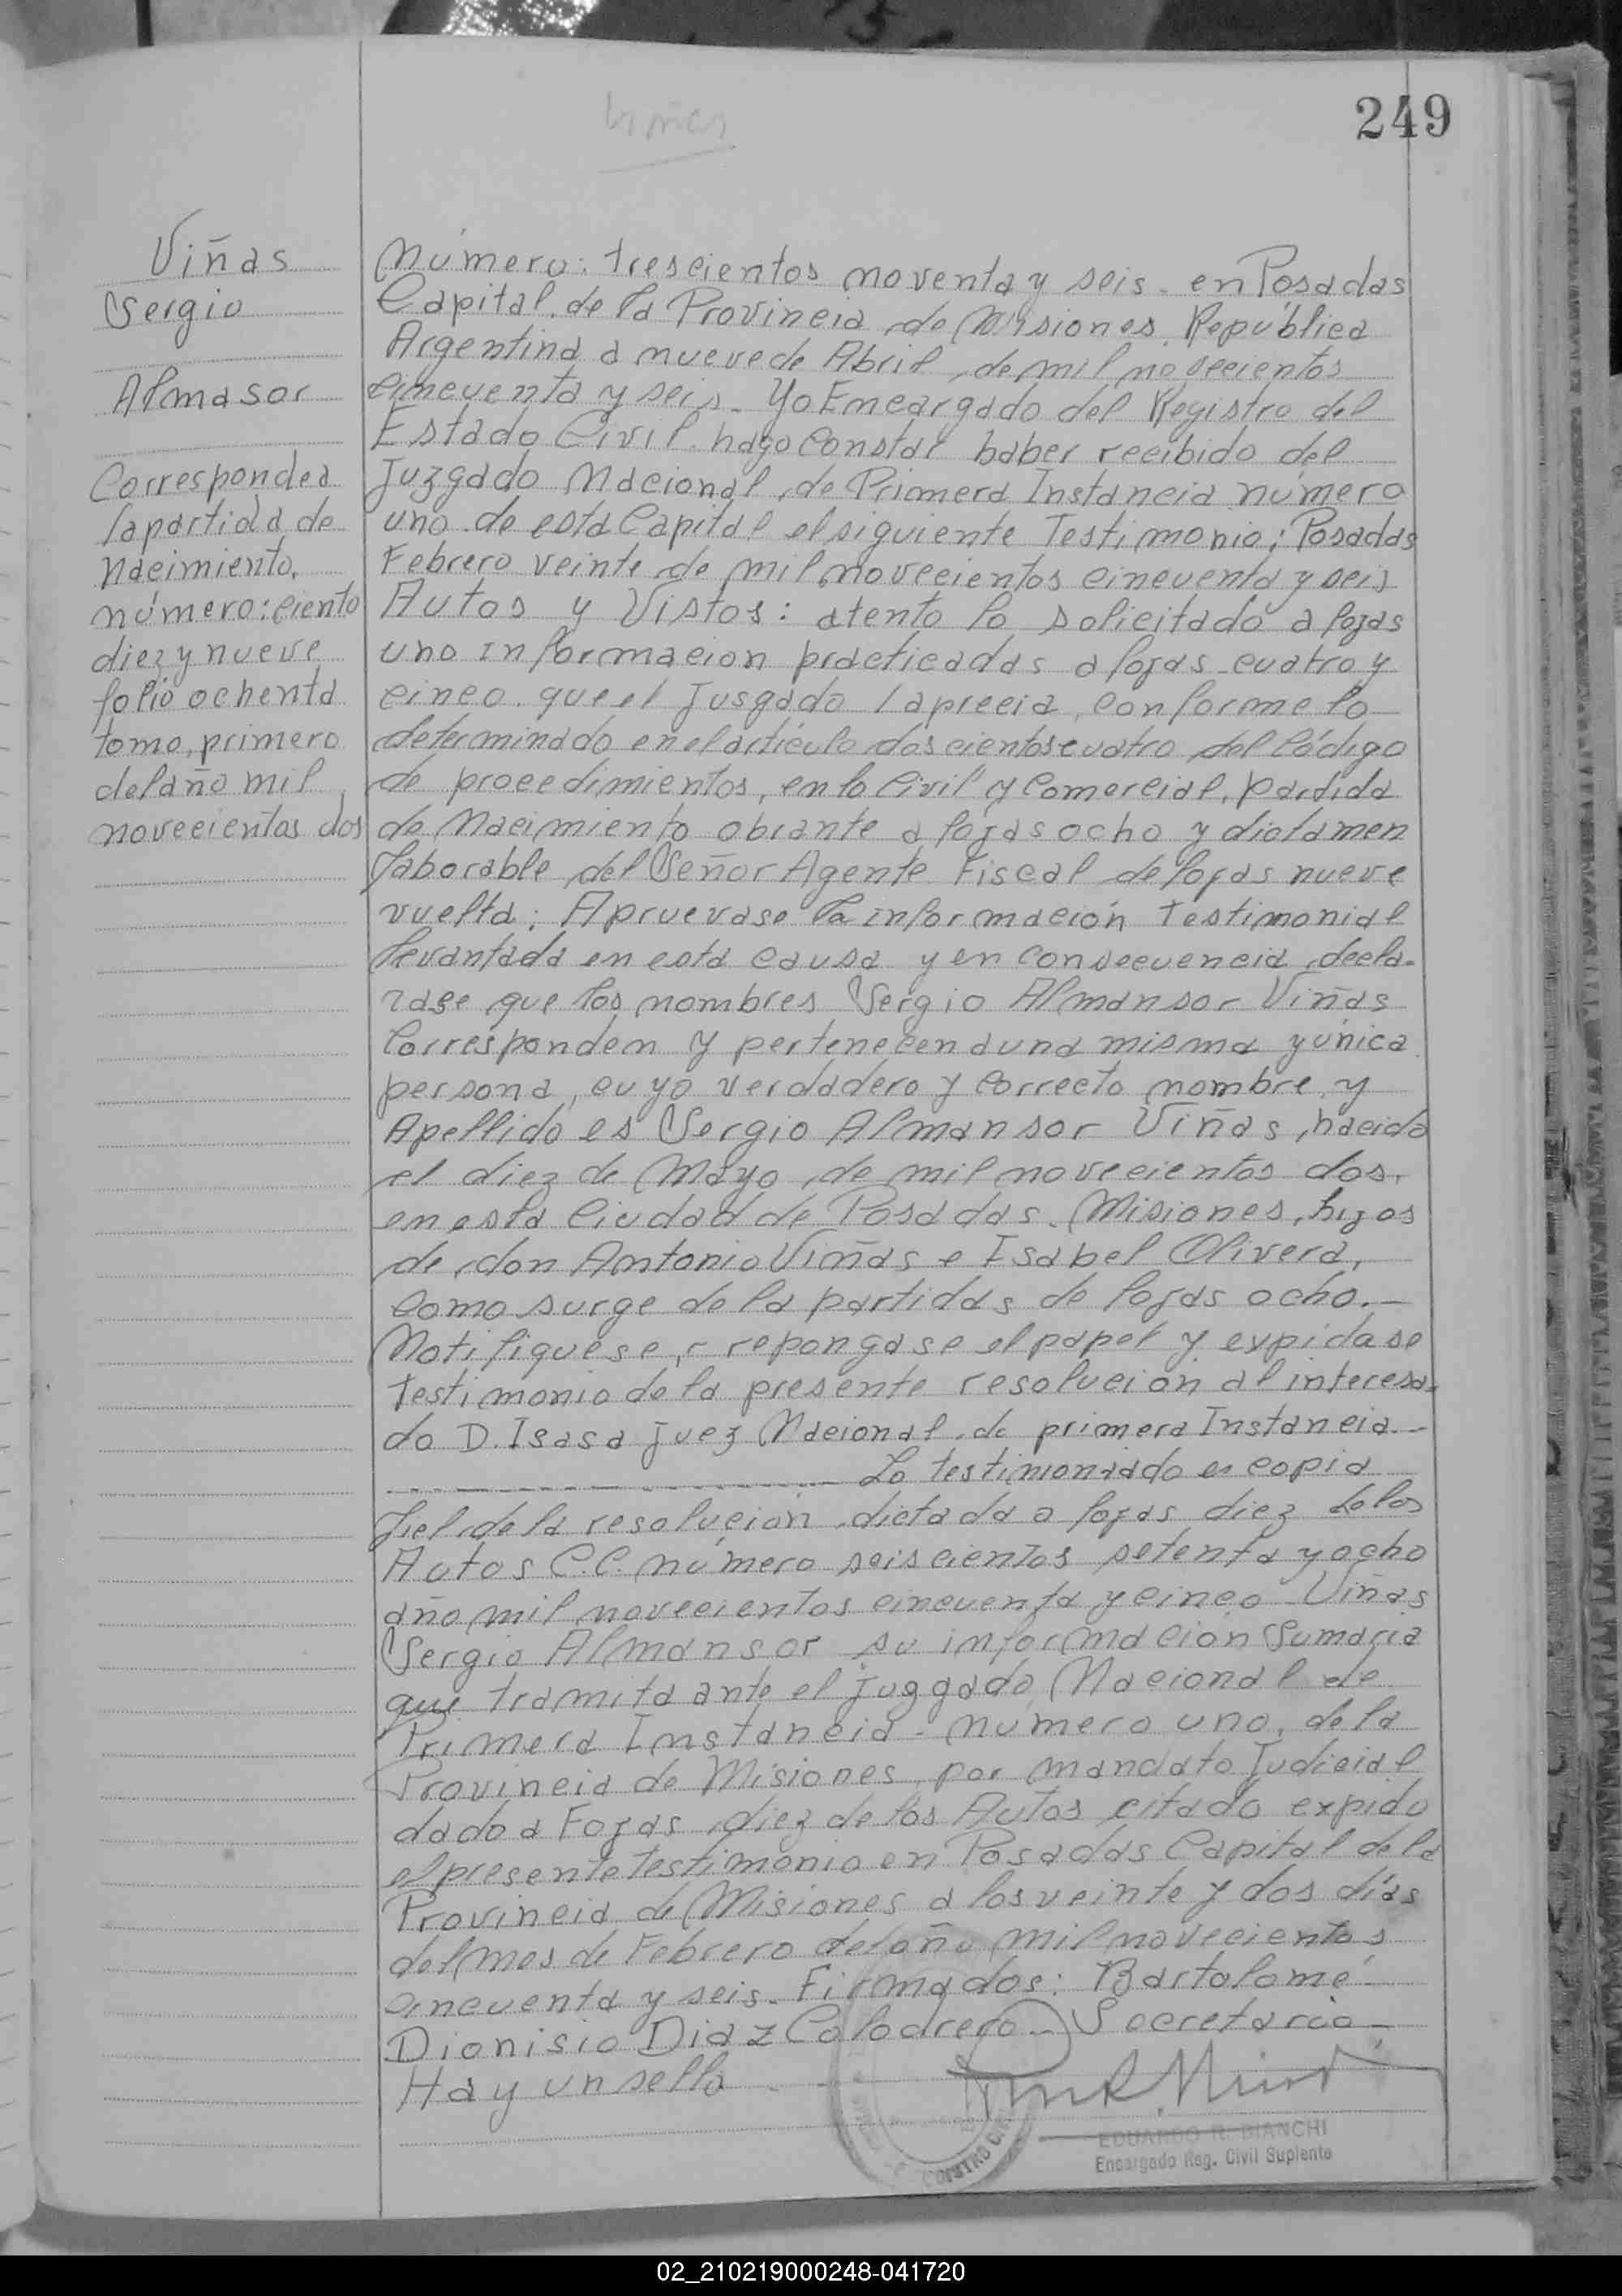 249
Viñas
Sergio
Almasor
Corresponde a
la partida de
Nacimiento.
número: ciento
diez y nueve
folio ochenta
tomo, primero
del año mil
novecientos dos
Número: trescientos noventa y seis - en Posadas
Capital de la Provincia de Misiones, República
Argentina a nueve de Abril, de mil novecientos
cincuenta y seis - Yo Encargado del Registro del
Estado Civil hago Constar haber recibido del
Juzgado Nacional, de Primera Instancia número
uno de esta Capital el siguiente Testimonio; Posadas
Febrero veinte de mil novecientos cincuenta y seis
Autos y Vistos: atento lo solicitado a fojas
uno informacion practicadas a fojas cuatro y
cinco, que el Jusgado l aprecia, conforme lo
determinado en el articulo doscientos cuatro del Código
de procedimientos, en lo Civil y Comercial, partida
de Nacimiento obrante a fojas ocho y dictamen
faborable del Señor Agente Fiscal de fojas nueve
vuelta; Apruevase la información Testimonial
levantada en esta causa y en consecuencia, decla-
rase que los nombres Sergio Almansor Viñas
Corresponden y pertenecen a una misma y única
persona, cuyo verdadero y correcto nombre y
Apellido es Sergio Almansor Viñas, nacido
el diez de Mayo, de mil novecientos dos,
en esta Ciudad de Posadas, Misiones, hijos
de don Antonio Viñas e Isabel Olivera,
como surge de la partidas de fojas ocho.-
Notifiquese, repongase el papel y expidase
testimonio de la presente resolución al interesa-
do D. Isasa Juez Nacional de primera Instancia.-
Lo testimoniado es copia
fiel de la resolución dictada a fojas diez de los
Autos C.C. número seiscientos setenta y ocho
año mil novecientos cincuenta y cinco - Viñas
Sergio Almansor su informacion Sumaria
que tramita ante el juzgado Nacional de
Primera Instancia - número uno, de la
Provincia de Misiones, por mandato Judicial
dado a Fojas diez de los Autos citado expido
el presente testimonio en Posadas Capital de la
Provincia de Misiones a los veinte y dos días
del mes de Febrero del año mil novecientos
cincuenta y seis - Firmados: Bartolomé
Dionisio Diaz Colodrero - Secretario -
Hay un sello
EDUARDO R. BIANCHI
Encargado Reg. Civil Suplente
02_210219000248-041720